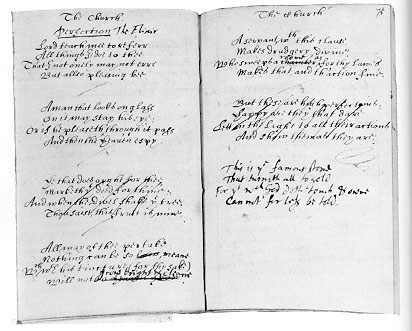 The Church
Perfection The Elixir
Lord teach mee to referr
All things I doe to thee
That I not onely may not erre
But allso pleasing bee
A man that looks on glass
On it may stay his eye:
Or if he pleaseth through it pass
And then the Heaven espy
He that does ought for thee
Marketh yt deed for thine:
And when the Divel shakes ye tree,
Thou saist, this fruit is mine.
All may of thee pertake
Nothing can be so low, meane
Wch with his tincture (for thy sake)
Will not grow bright & cleane
The Church 75
A servant, wth this clause
Makes drudgery, divine.
Who sweeps a chamber, roome as for thy Laws
Makes that and th'action fine.
But these are high perfections:
Happy are they that dare
Lett in the Light to all their actions
And show them as they are.
This is ye famous stone
That turneth all to gold
For yt wch God doth touch & owne
Cannot for less be told.